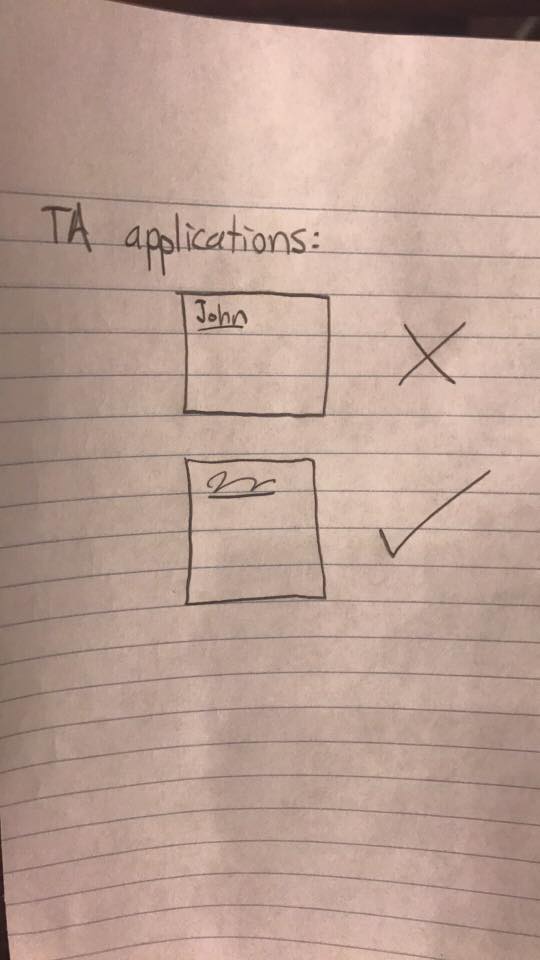 TA applications:
John